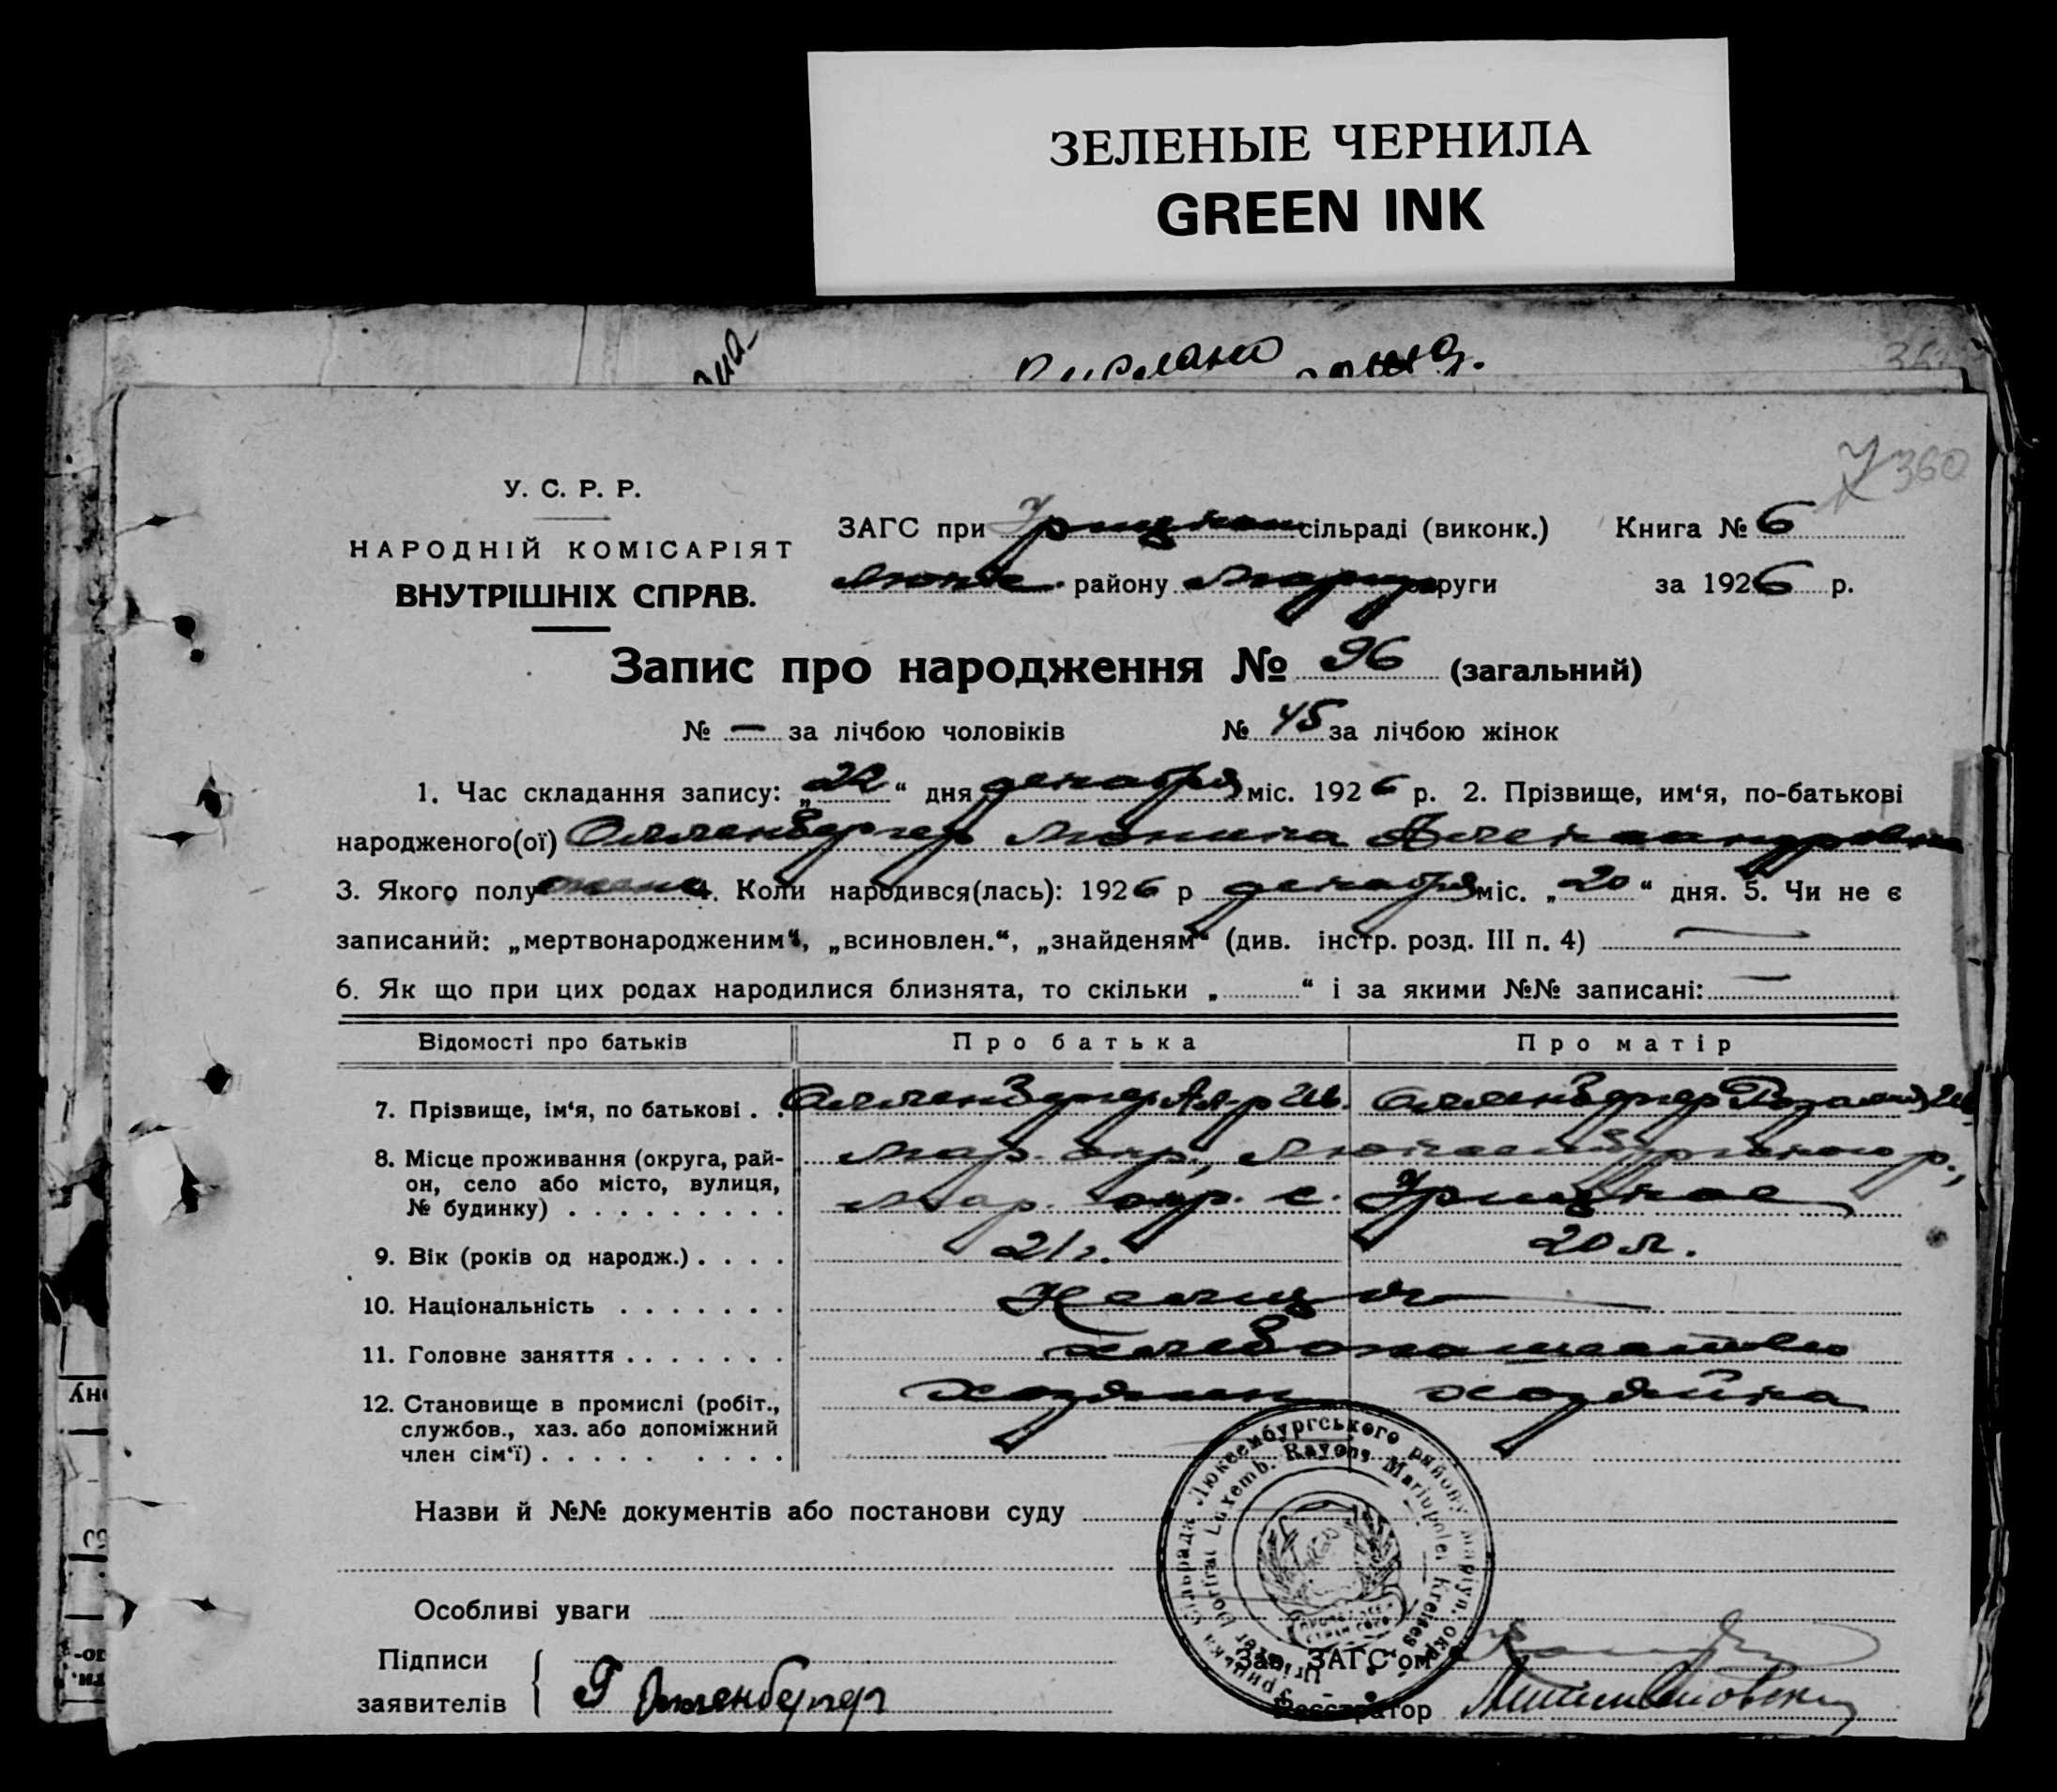 ЗЕЛЕНЫЕ ЧЕРНИЛА
GREEN INK
360
У. С. Р. Р.
НАРОДНІЙ КОМІСАРІЯТ
ВНУТРІШНІХ СПРАВ.
ЗАГС при Урицкой сільраді (виконк.) Книга № 6
Люкс. району Мариуп округи за 1926 р.
Запис про народження № 96 (загальний)
№ — за лічбою чоловіків № 45 за лічбою жінок
1. Час складання запису: „22“ дня декабря міс. 1926 р. 2. Прізвище, им‘я, по-батькові
народженого(ої) Олленбергер Александровна
3. Якого полу жене 4. Коли народився(лась): 1926 р декабря міс. „20“ дня. 5. Чи не є
записаний: „мертвонародженим“, „всиновлен.“, „знайденям“ (див. інстр. розд. III п. 4) —
6. Як що при цих родах народилися близнята, то скільки „ “ і за якими №№ записані: —
Відомості про батьків Про батька Про матір
7. Прізвище, ім‘я, по батькові . . Олленбергер Ал-р Ив. Олленбергер
8. Місце проживання (округа, рай- Мар. окр., Люксембургского р.,
он, село або місто, вулиця, Мар. окр. с. Урицкое
№ будинку) . . . . . . . . .
9. Вік (років од народж.) . . . . 21 г. 20 л.
10. Національність . . . . . . . Немцы
11. Головне заняття . . . . . . . хлебопашество
12. Становище в промислі (робіт., хозяин хозяйка
службов., хаз. або допоміжний
член сім‘ї) . . . . . . . . .
Назви й №№ документів або постанови суду
Особливі уваги
Підписи
заявителів Олленбергер
Зав. ЗАГС‘ом
Реєстратор
Урицька сільрада Люксембургського району Маріуп. окр.
Urizker Dorfrat Luxemb. Rayons Mariupoler Kreises